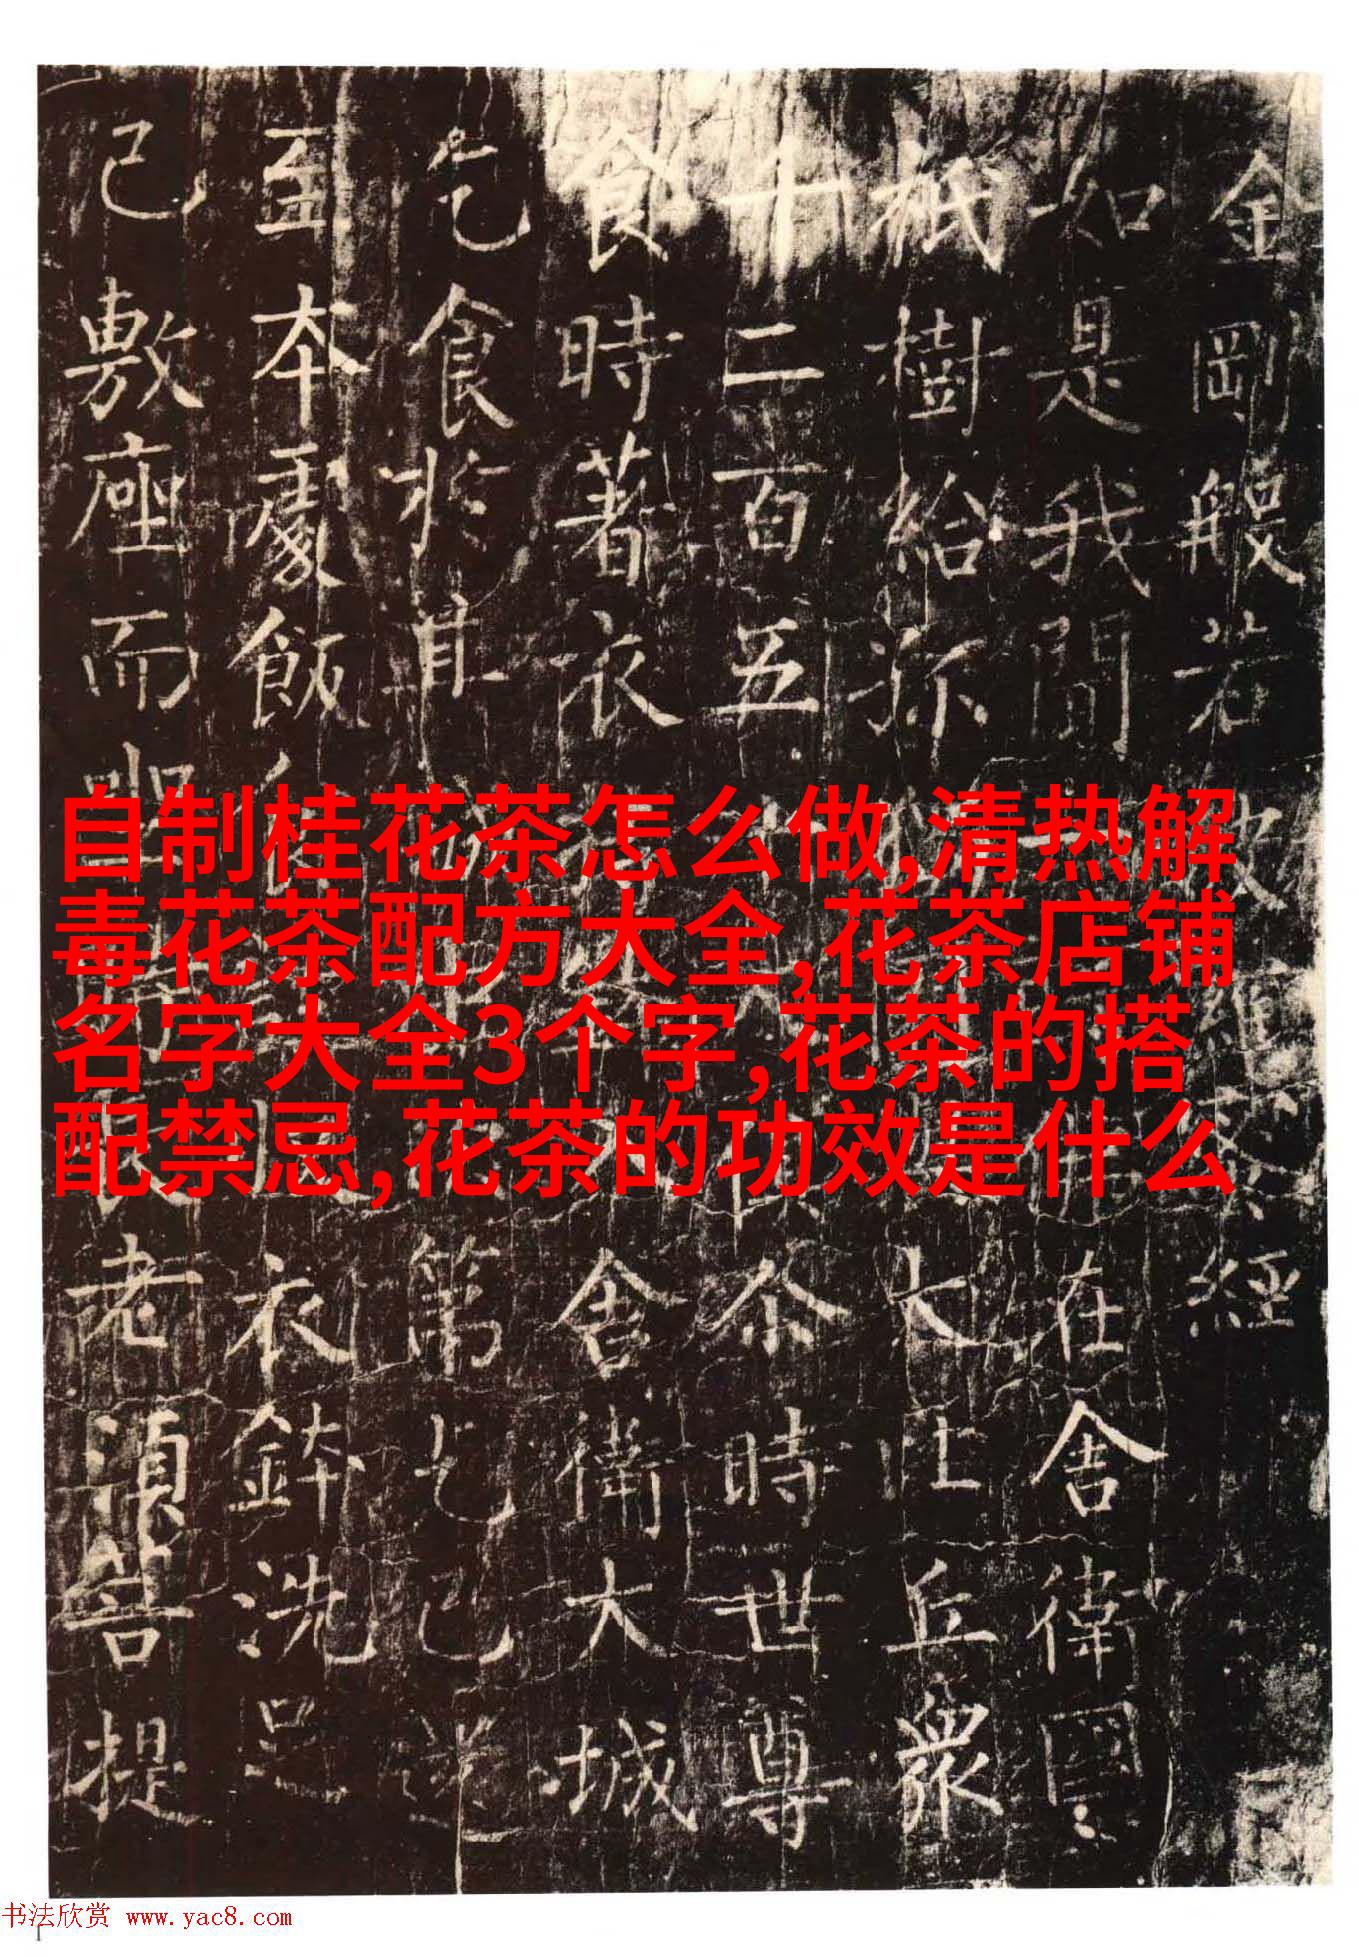 金剛般若經
如是我聞在舍衛國
祇樹給孤大比丘眾
千二百五尒時世尊
食時著衣舍衛大城
乞食於其第乞已還
至本處飯衣鉢洗足
已敷座而坐老須菩提
自制桂花茶怎么做,清热解
毒花茶配方大全,花茶店铺
名字大全3个字,花茶的搭
配禁忌,花茶的功效是什么
书法欣赏 www.yac8.com
1